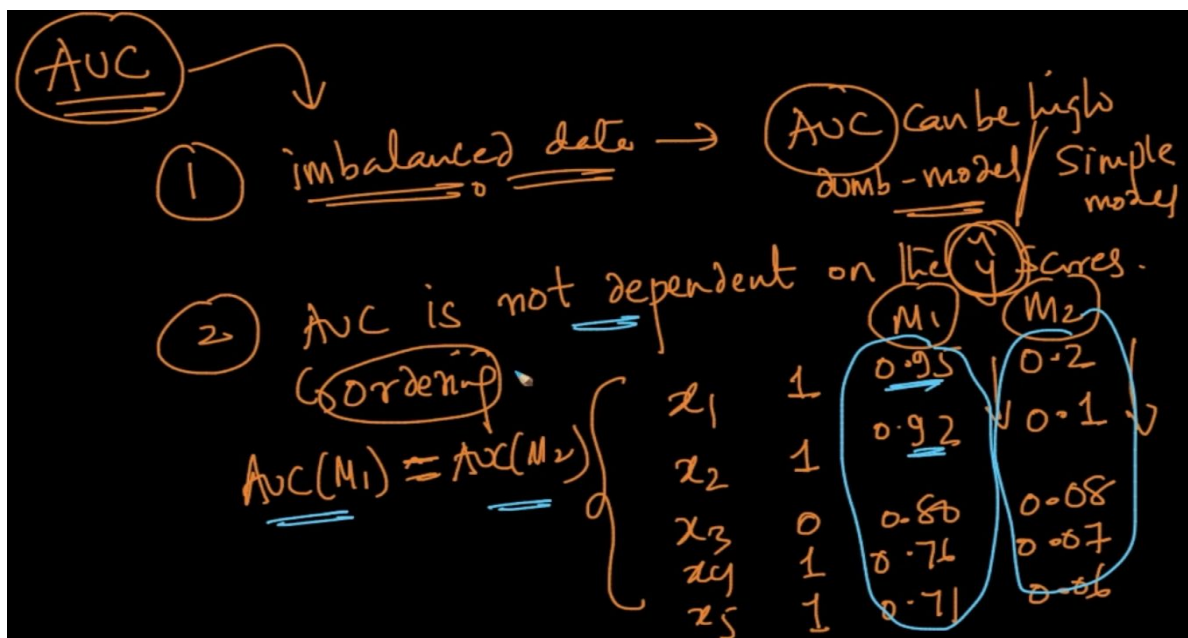 AUC
1 imbalanced data → AUC can be high
dumb-model / Simple
model
2 AUC is not dependent on the ŷ scores.
ordering
M1 M2
AUC(M1) = AUC(M2)
x1 1 0.95 0.2
x2 1 0.92 0.1
x3 0 0.80 0.08
x4 1 0.76 0.07
x5 1 0.71 0.06